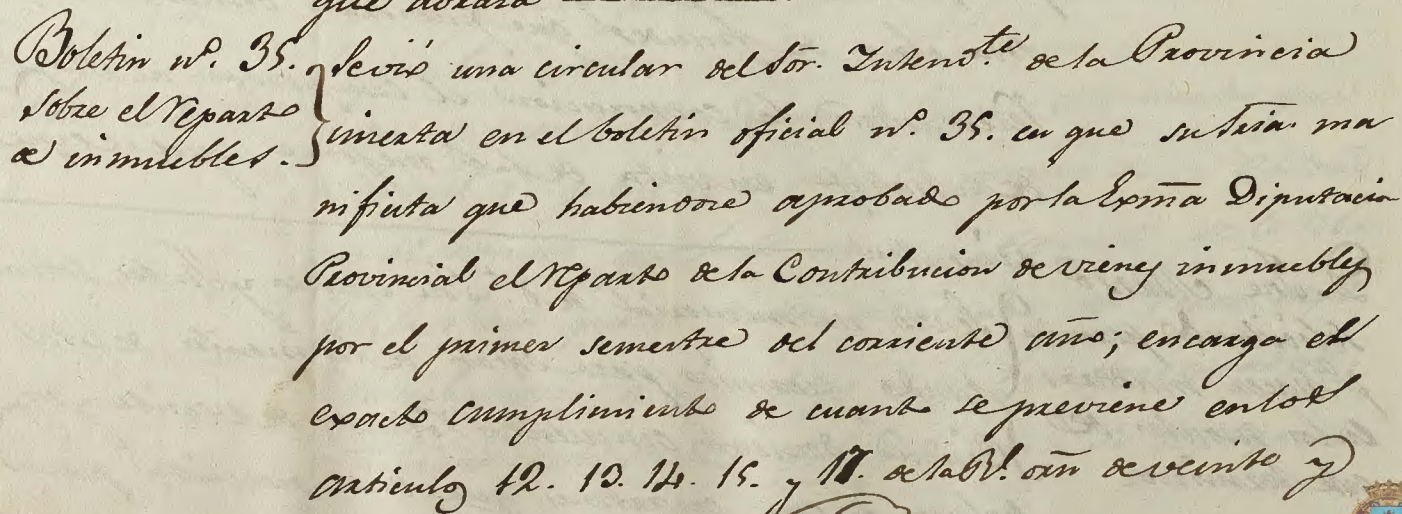 que
Boletin nº. 35.
sobre el reparto
de inmuebles.
Se vió una circular del Sor. Intendte. de la Provincia
inserta en el boletin oficial nº. 35. en que su Sria. ma
nifiesta que habiendose aprobado por la Exma Diputacion
Provincial el reparto de la Contribucion de vienes inmuebles
por el primer semestre del corriente año; encarga el
exacto cumplimiento de cuanto se previene en los
articulos 12. 13. 14. 15. y 17. de la Rl. orn de veinte y